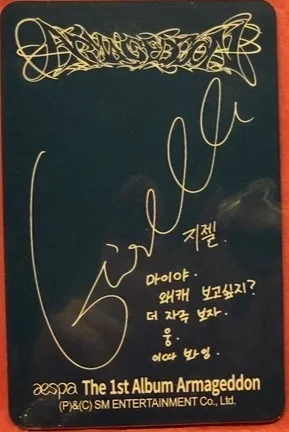 ARMAGEDDON
Giselle
지젤.
마이야.
왜캐 보고싶지?
더 자주 보자.
웅.
이따 봐잉.
aespa The 1st Album Armageddon
(P)&(C) SM ENTERTAINMENT Co., Ltd.